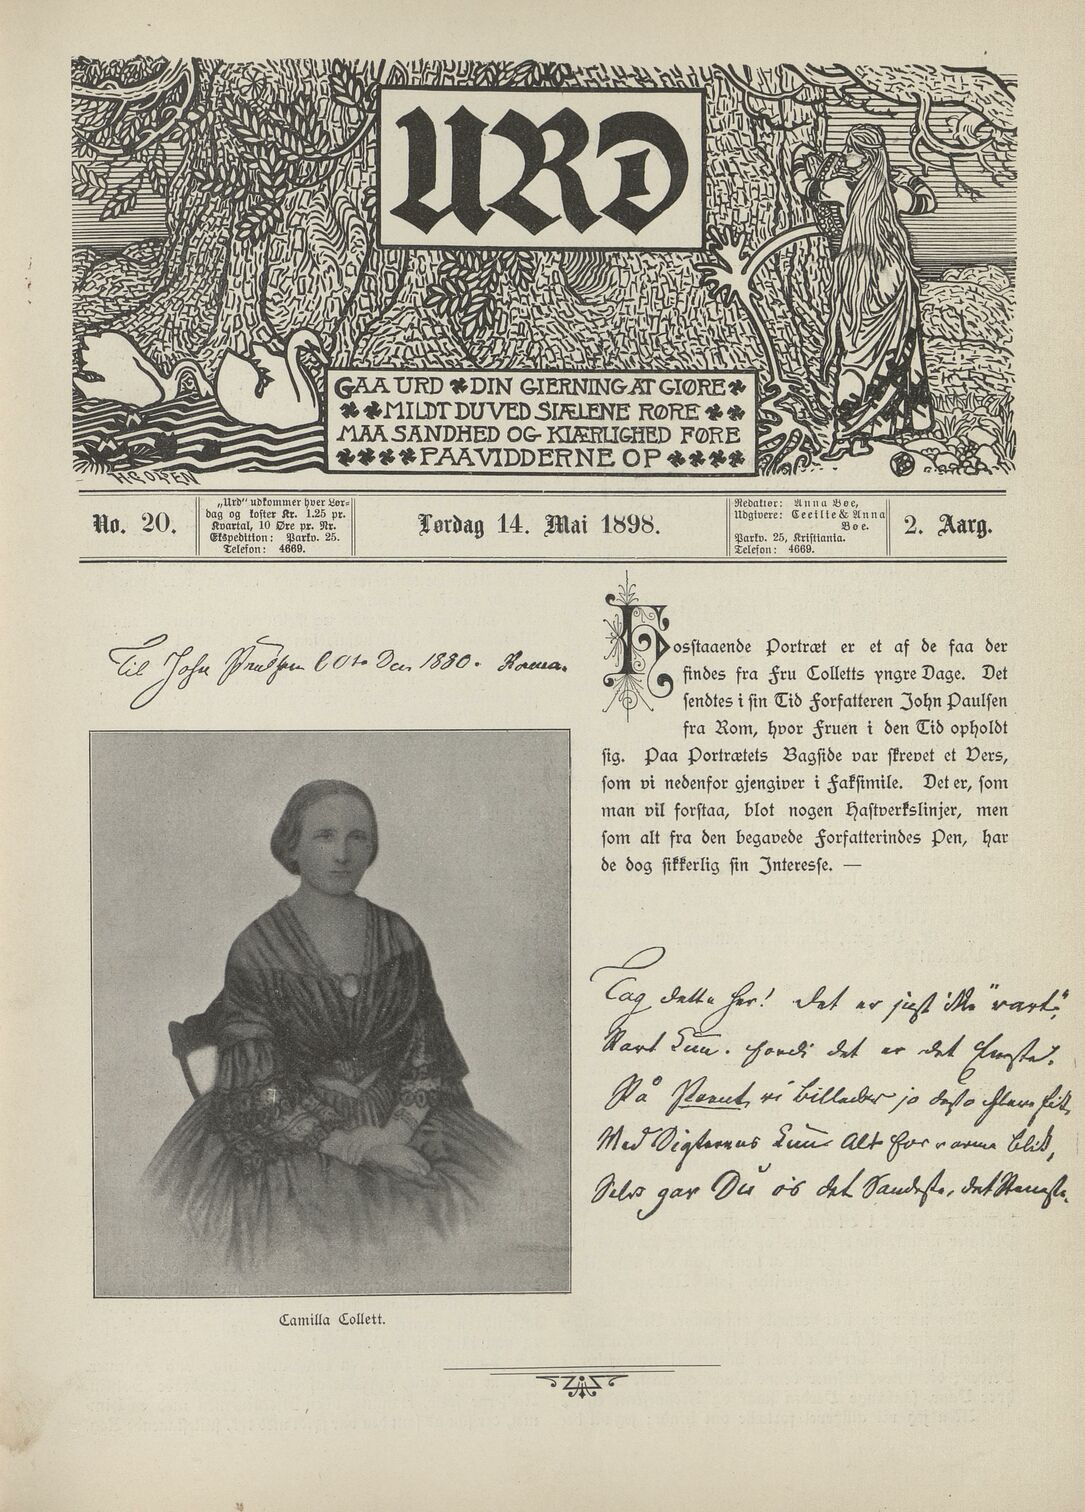 URD
GAA URD DIN GIERNING AT GIØRE
MILDT DU VED SIÆLENE RØRE
MAA SANDHED OG KIÆRLIGHED FØRE
PAA VIDDERNE OP
No. 20.
„Urd“ udkommer hver Lør-
dag og koster Kr. 1.25 pr.
Kvartal, 10 Øre pr. Nr.
Ekspedition: Parkv. 25.
Telefon: 4669.
Lørdag 14. Mai 1898.
Redaktør: Anna Bøe,
Udgivere: Cecilie & Anna
Bøe.
Parkv. 25, Kristiania.
Telefon: 4669.
2. Aarg.
Til John Paulsen Den 1880. Roma.
Fosstaaende Portræt er et af de faa der
findes fra Fru Colletts yngre Dage. Det
sendtes i sin Tid Forfatteren John Paulsen
fra Rom, hvor Fruen i den Tid opholdt
sig. Paa Portrætets Bagside var skrevet et Vers,
som vi nedenfor gjengiver i Faksimile. Det er, som
man vil forstaa, blot nogen Hastverkslinjer, men
som alt fra den begavede Forfatterindes Pen, har
de dog sikkerlig sin Interesse. —
Tag dette her! det er just ikke "rart",
Rart kun. fordi det er det
På vi billeder jo
Med Digterens kun alt for varme blik,
gav Du os det Sandeste, det
Camilla Collett.